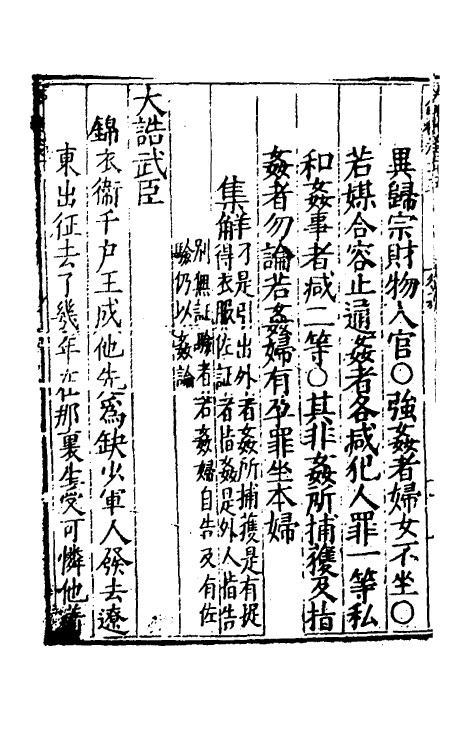 異歸宗財物入官○強姦者婦女不坐○
若媒合容止通姦者各減犯人罪一等私
和姦事者減二等○其非姦所捕獲及指
姦者勿論若姦婦有孕罪坐本婦
集解不是引出外者姦所捕獲是有捉
得衣服佐証者指姦是外人指告
別無証驗者若姦婦自告及有佐
驗仍以姦論
大誥武臣
錦衣衞千户王成他先為缺少軍人發去遼
東出征去了幾年在那裏生受可憐他